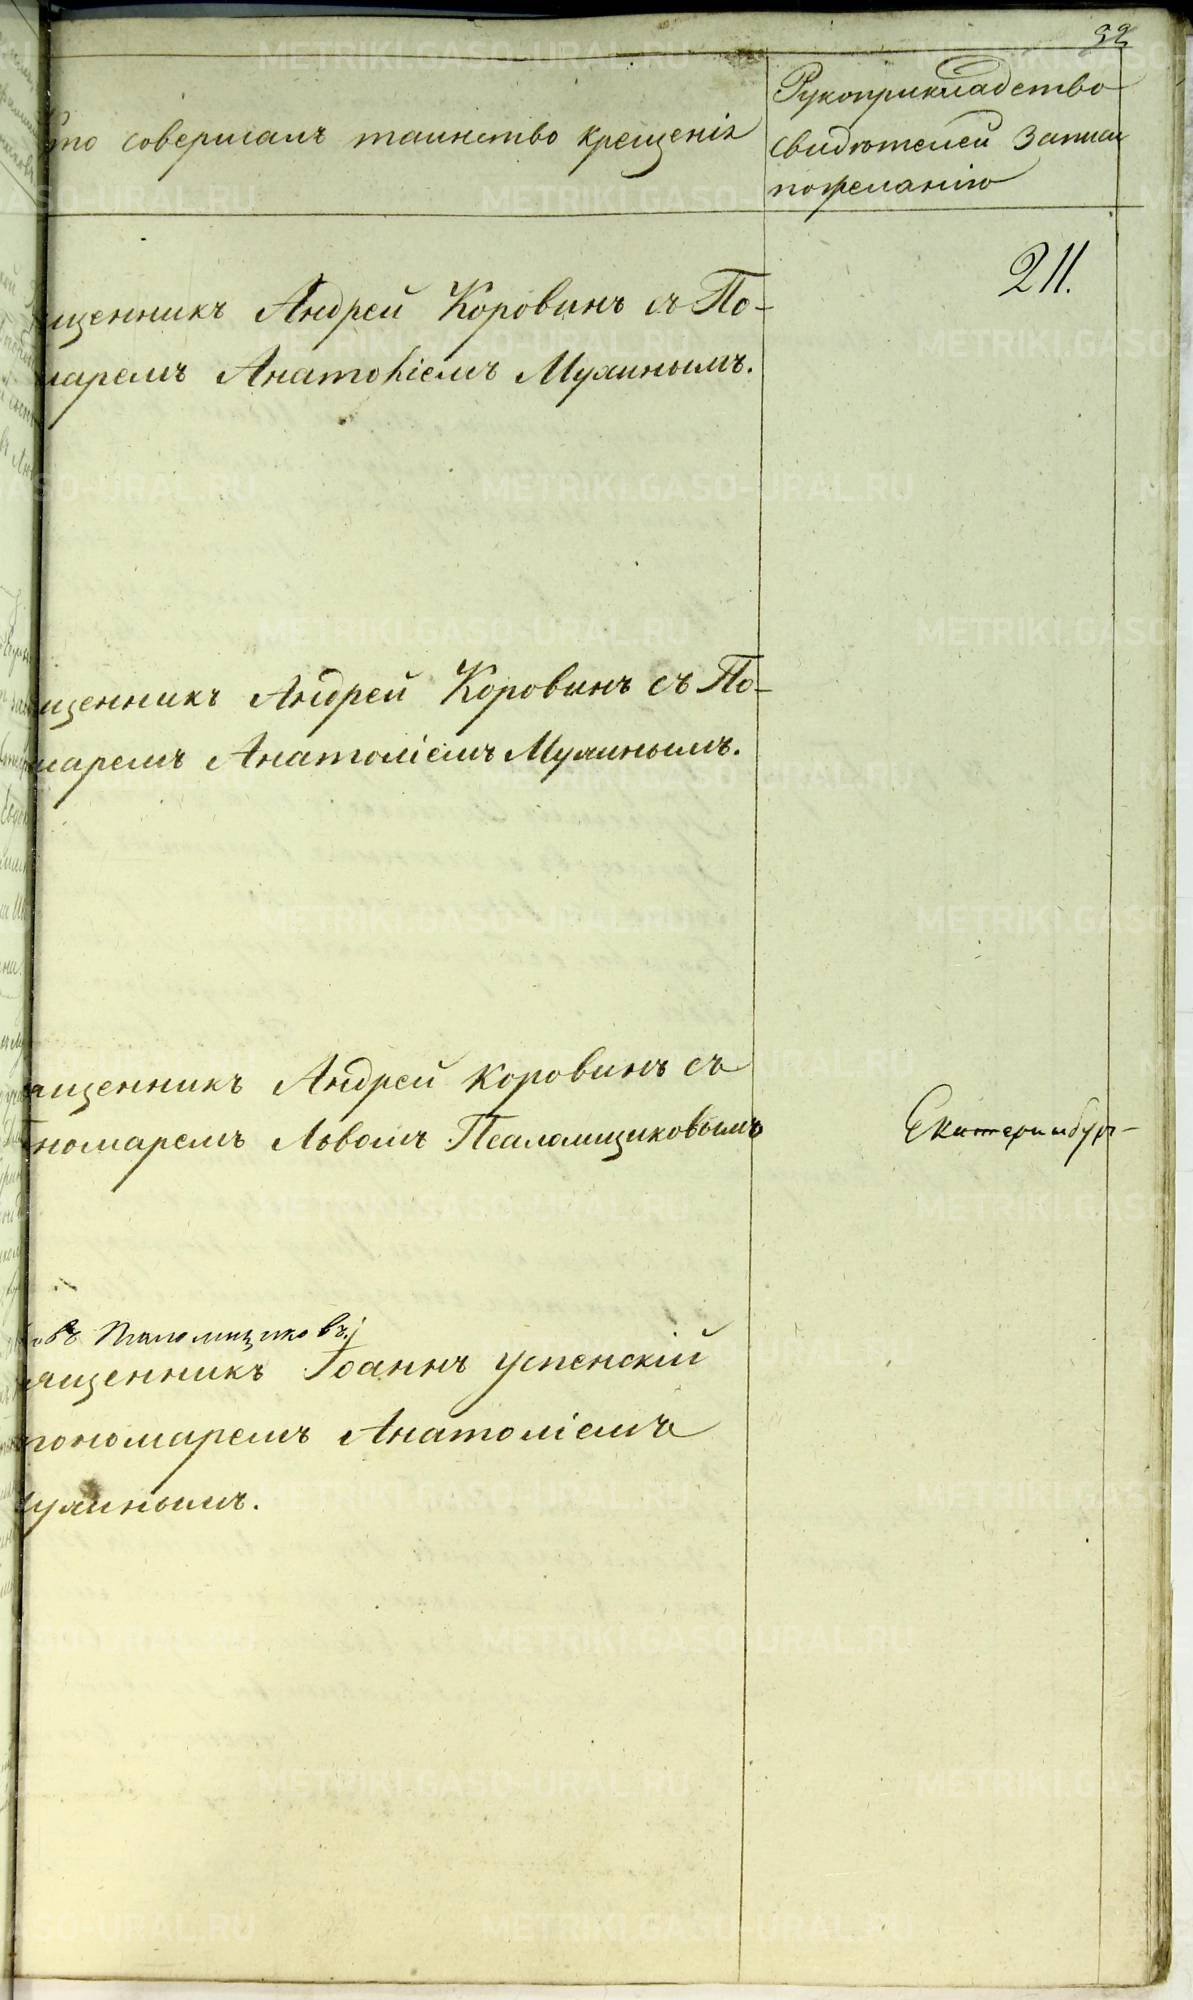 32
то совершалъ таинство крещенія
Рукоприкладство
свидѣтелей записи
по желанію
211.
щенникъ Андрей Коровинъ съ По-
маремъ Анатоліемъ Мухинымъ.
щенникъ Андрей Коровинъ съ По-
маремъ Анатоліемъ Мухинымъ.
ященникъ Андрей Коровинъ съ
номаремъ Львомъ Псаломщиковымъ
Екатеринбург-
въ Псаломщиковъ
ященникъ Іоаннъ Успенскій
пономаремъ Анатоліемъ
ухинымъ.
METRIKI.GASO-URAL.RU